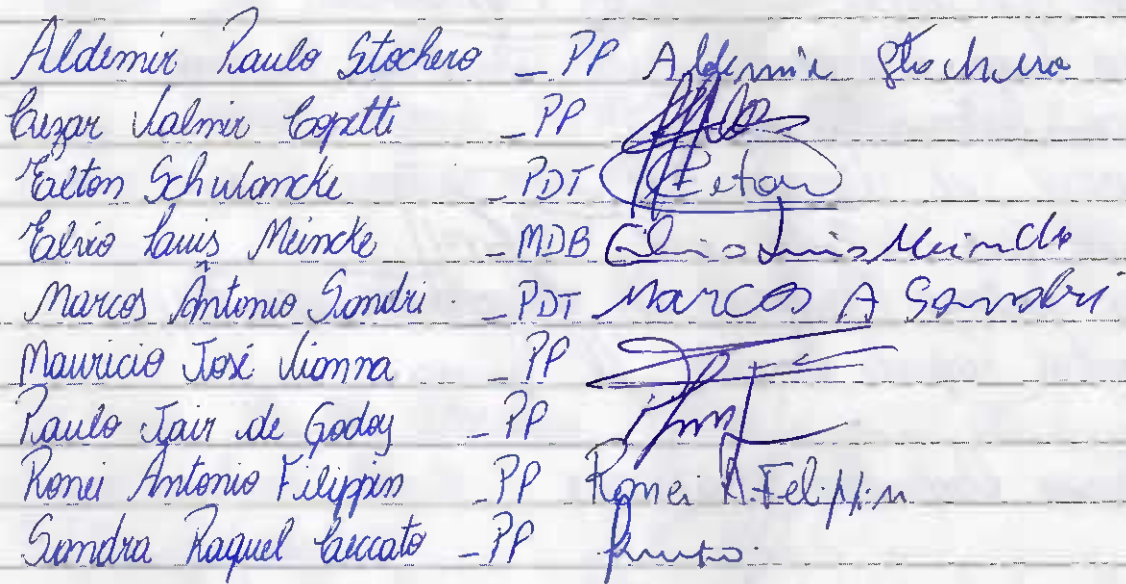 Aldemir Paulo Stochero - PP Aldemir Stochero
Cezar Valmir Copetti - PP
Elton Schulancke - PDT Elton
Elvio Luis Meincke - MDB Elvio Luis Meincke
Marcos Ântonio Sandri - PDT Marcos A Sandri
Mauricio José Vianna - PP
Paulo Jair de Godoy - PP
Ronei Ântonio Filippin - PP Ronei A. Felippin
Sandra Raquel Ceccato - PP